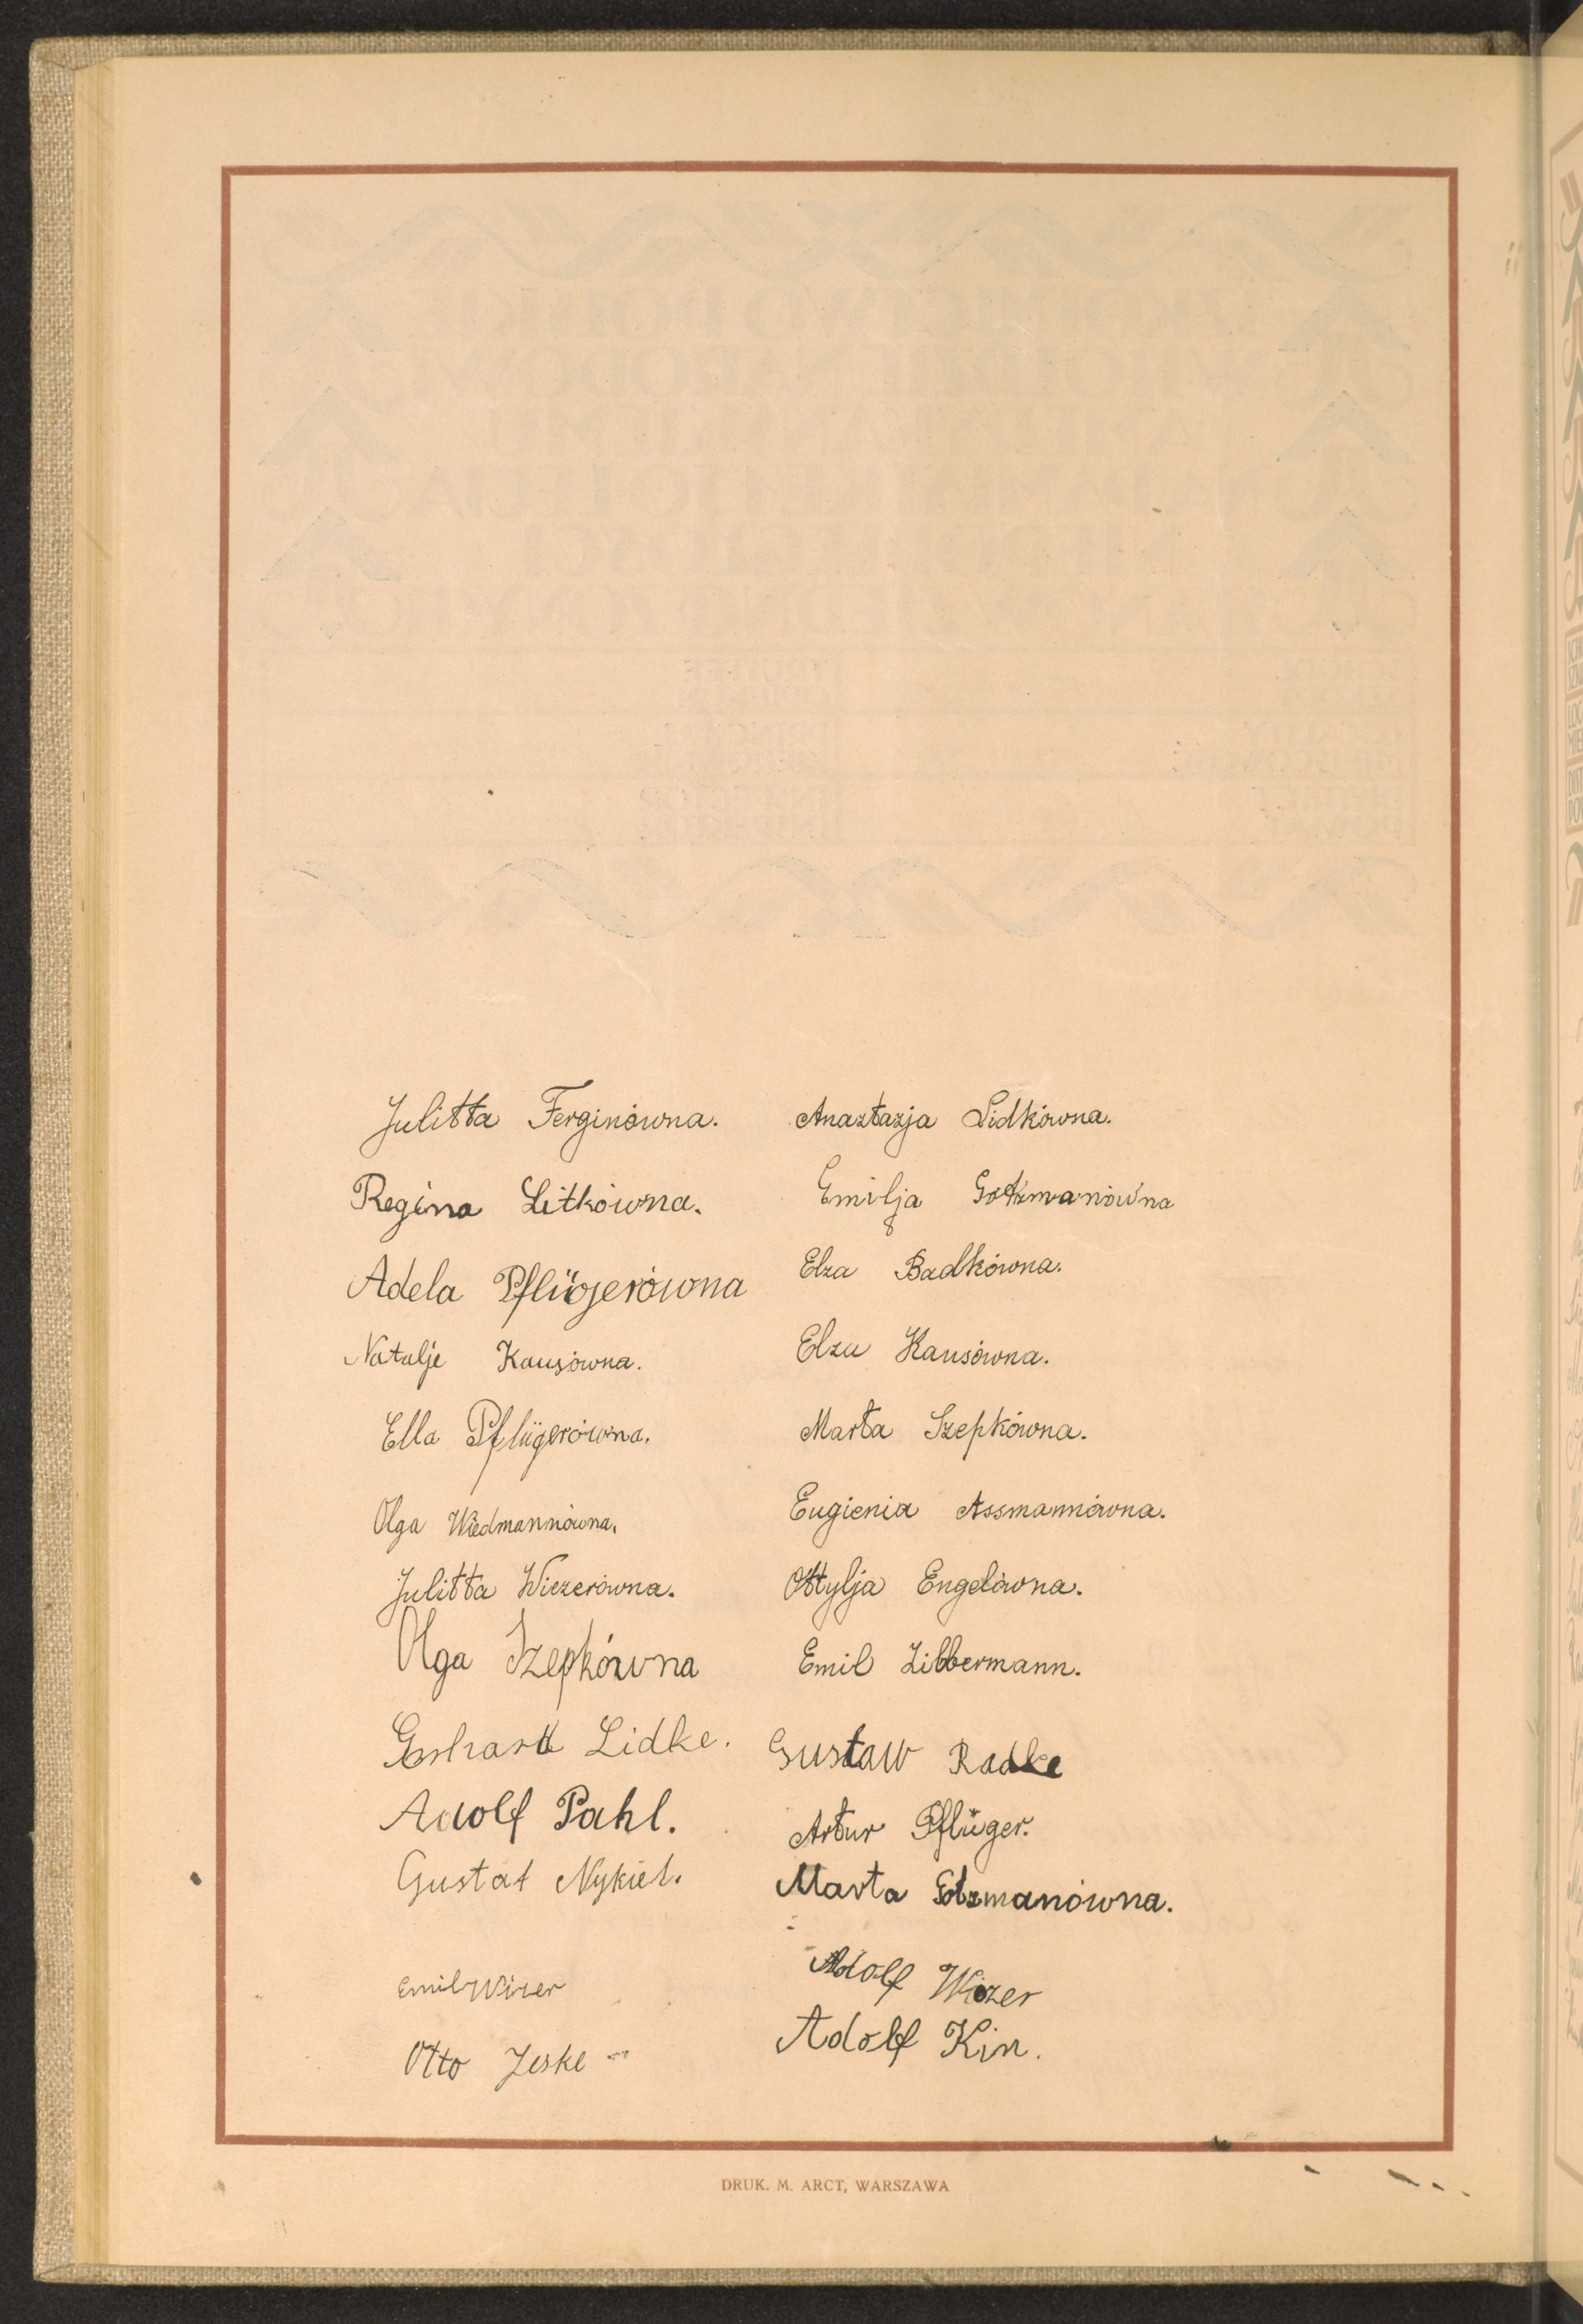 Julitta Ferginówna.
Regina Litkówna.
Adela Pflügerówna
Natalje Kausówna.
Ella Pflügerówna.
Olga Wiedmannówna.
Julitta Wiezerówna.
Olga Szepkówna
Gerhard Lidke.
Adolf Pahl.
Gustaf Nykiel.
Emil Wizer
Otto Jeske
Anaztazja Lidkówna.
Emilja Gotzmanówna
Elza Badkówna.
Elza Kausówna.
Marta Szepkówna.
Eugienia Assmannówna.
Ottylja Engelówna.
Emil Zilbermann.
Gustaw Radke
Artur Pflüger.
Marta Gotzmanówna.
Adolf Wizer
Adolf Kin.
DRUK. M. ARCT, WARSZAWA